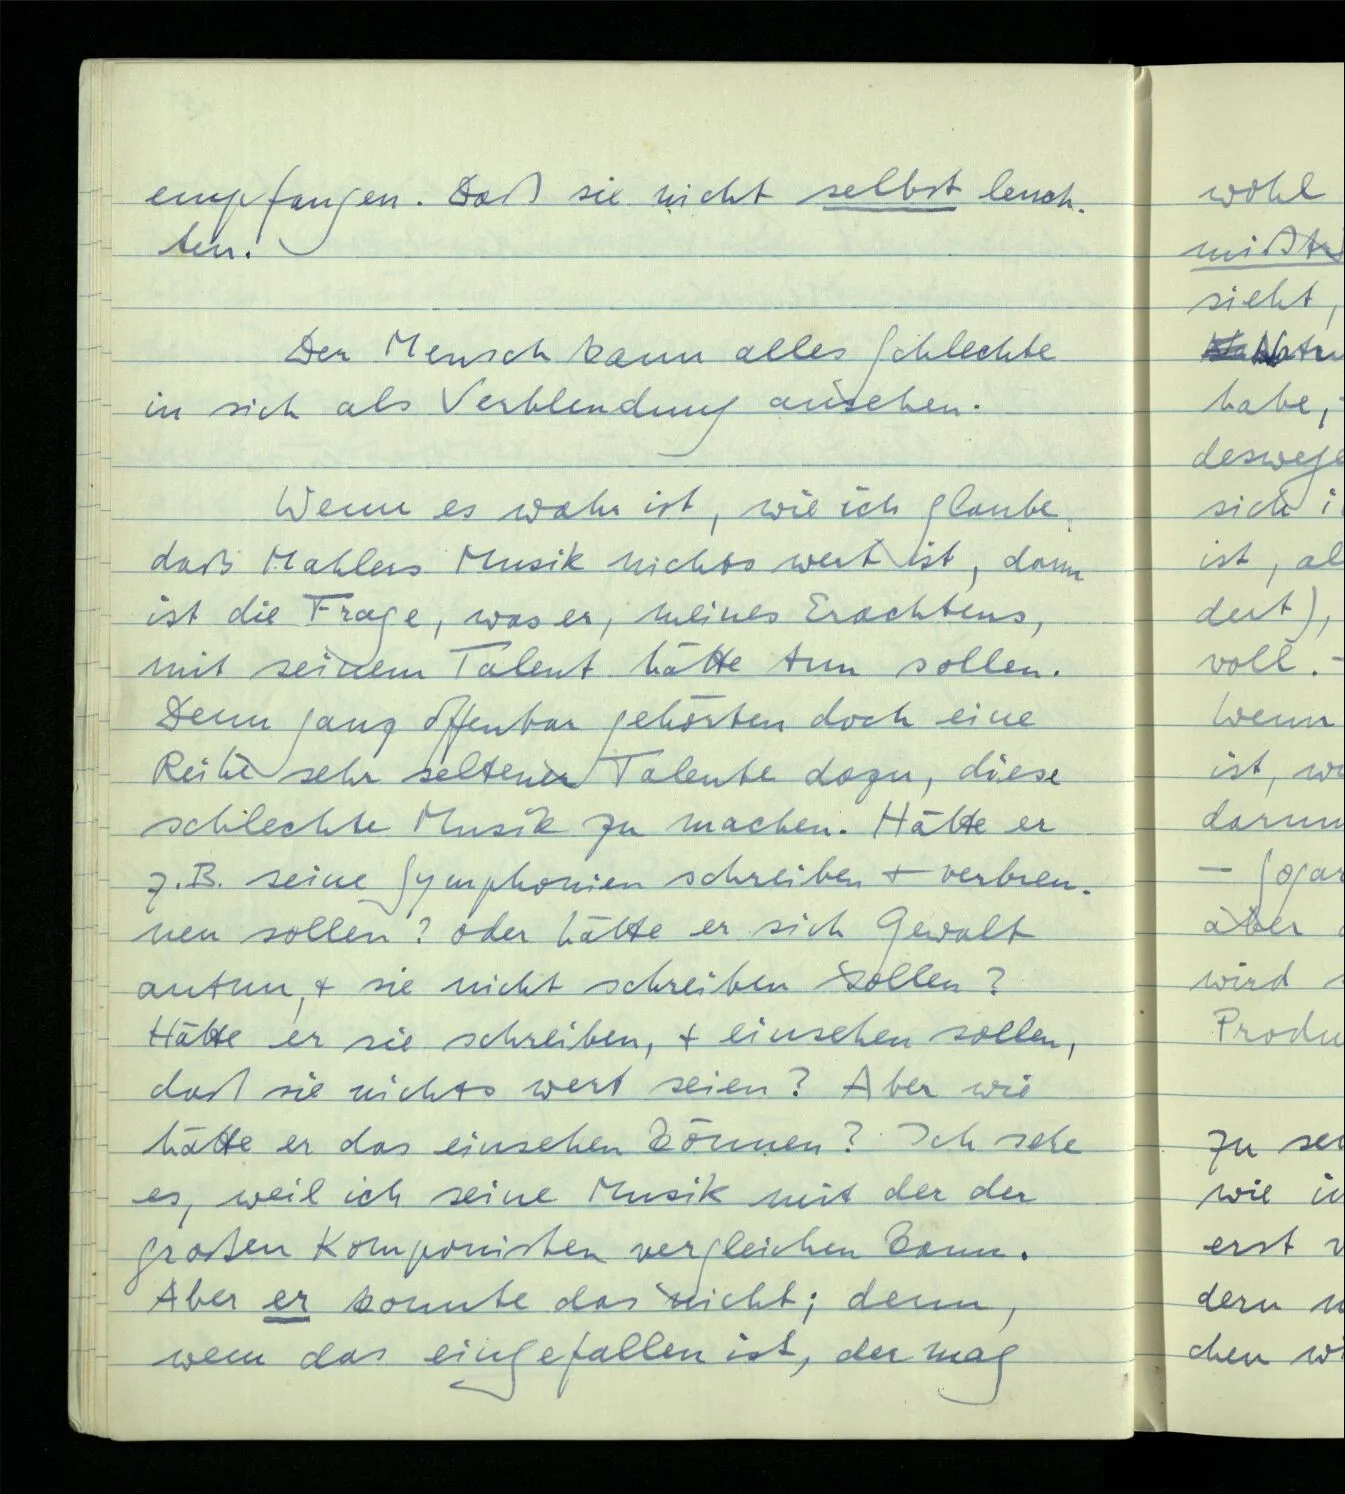 empfangen. Daß sie nicht selbst leuch-
ten.
Der Mensch kann alles Schlechte
in sich als Verblendung ansehen.
Wenn es wahr ist, wie ich glaube,
daß Mahlers Musik nichts wert ist, dann
ist die Frage, was er, meines Erachtens,
mit seinem Talent hätte tun sollen.
Denn ganz offenbar gehörten doch eine
Reihe sehr seltener Talente dazu, diese
schlechte Musik zu machen. Hätte er
z.B. seine Symphonien schreiben + verbren-
nen sollen? oder hätte er sich Gewalt
antun, + sie nicht schreiben sollen?
Hätte er sie schreiben, + einsehen sollen,
daß sie nichts wert seien? Aber wie
hätte er das einsehen können? Ich sehe
es, weil ich seine Musik mit der der
großen Komponisten vergleichen kann.
Aber er konnte das nicht; denn,
wem das eingefallen ist, der mag
wohl
sieht,
habe,
sich
ist,
dert),
voll. -
Wenn
ist,
- Sogar
aber
wird
zu
wie
erst
dern
chen